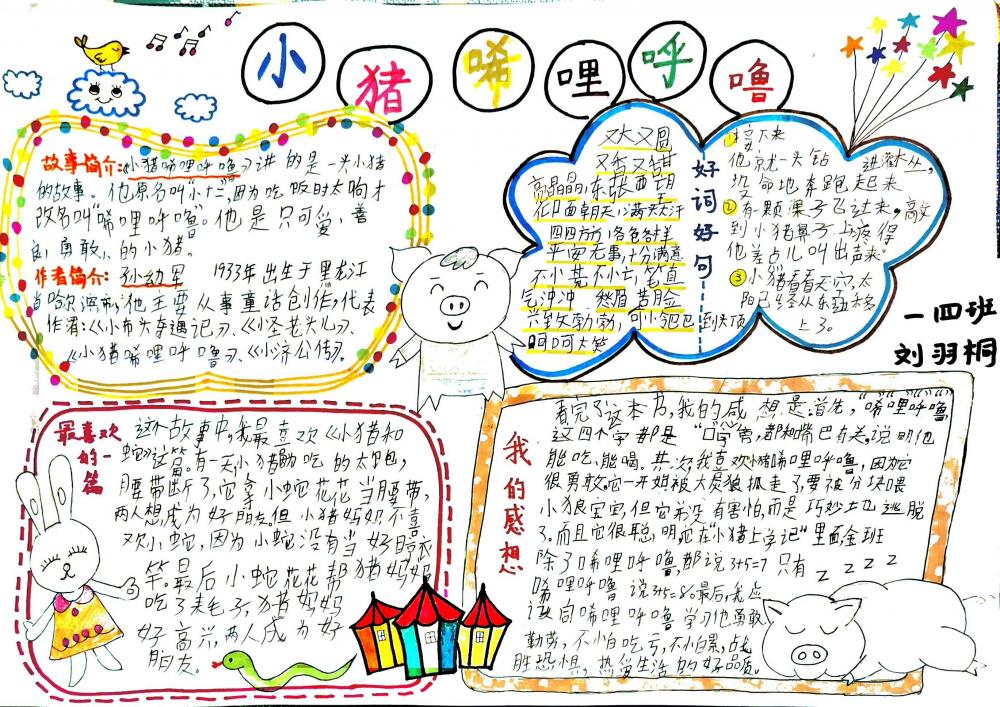 小猪唏哩呼噜
故事简介:《小猪唏哩呼噜》讲的是一头小猪
的故事。他原名叫“小十二”,因为吃饭时太响才
改名叫“唏哩呼噜”。他是只可爱、善
良、勇敢、的小猪。
作者简介:孙幼军 1933年出生于黑龙江
省哈尔滨市,他主要从事童话创作,代表
作有:《小布头奇遇记》、《小怪老头儿》、
《小猪唏哩呼噜》、《小济公传》。
好词好句
又大又圆
又香又甜
亮晶晶,东张西望
仰面朝天,满头大汗
四四方方,各色各样
平安无事,十分满意
不小其不小,笔直
气冲冲 愁眉苦脸
兴致勃勃,可小轮巴
呵呵大笑
①接下来
他就一头钻 进灌木丛,
没命地奔跑起来
②有颗果子飞过来,
到小猪鼻子上,疼得
他差点儿叫出声来
③小猪看看天空,太
阳已经从东边移
到头顶上了。
一四班
刘羽桐
最喜欢的一篇
这个故事中,我最喜欢《小猪和
蛇》这篇。有一天,小猪吃的太饱,
腰带断了,它拿小蛇花花当腰带,
两人想成为好朋友。但小猪妈妈不喜
欢小蛇,因为小蛇没有当好晾衣
竿。最后小蛇花花帮猪妈妈
吃了耗子,猪妈妈
好高兴,两人成为好
朋友。
我的感想
看完了这本书,我的感想是:首先,“唏哩呼噜”
这四个字都是“口”字旁,都和嘴巴有关。说明他
能吃、能喝。其次,我喜欢小猪唏哩呼噜,因为它
很勇敢。它一开始被大灰狼抓走了,要被分块喂
小狼宝宝,但它并没有害怕,而是巧妙土也逃脱
了。而且它很聪明,呃在“小猪上学记”里面全班
除了唏哩呼噜,都说3+5=7只有
唏哩呼噜说3+5=8。最后,我应
该向唏哩呼噜学习他勇敢
勤劳,不怕吃亏,不怕累,战
胜恐惧,热爱生活的好品质。
z z z z